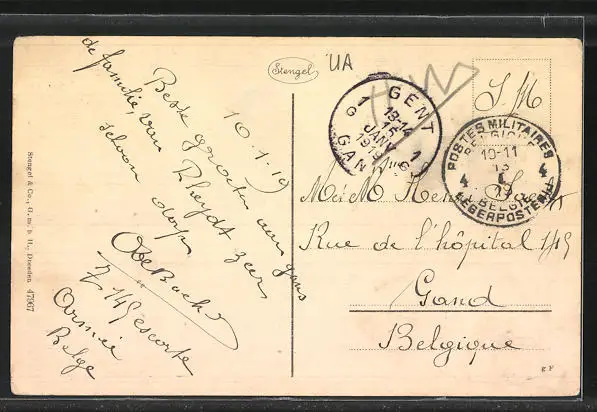 Stengel
UA
S.M
10.1.19
Beste groeten aan gans
de familie, van Rheydt zeer
schoon dorp
Z 145 escorte
Armée
Belge
GENT
13-14
15
JANV
1919
GAND
POSTES MILITAIRES
BELGIQUE
10-11
13
I
19
4 4
BELGIE
LEGERPOSTERIJ
M et Mme
Rue de l'hôpital 145
Gand
Belgique
Stengel & Co., G. m. b. H., Dresden 47967